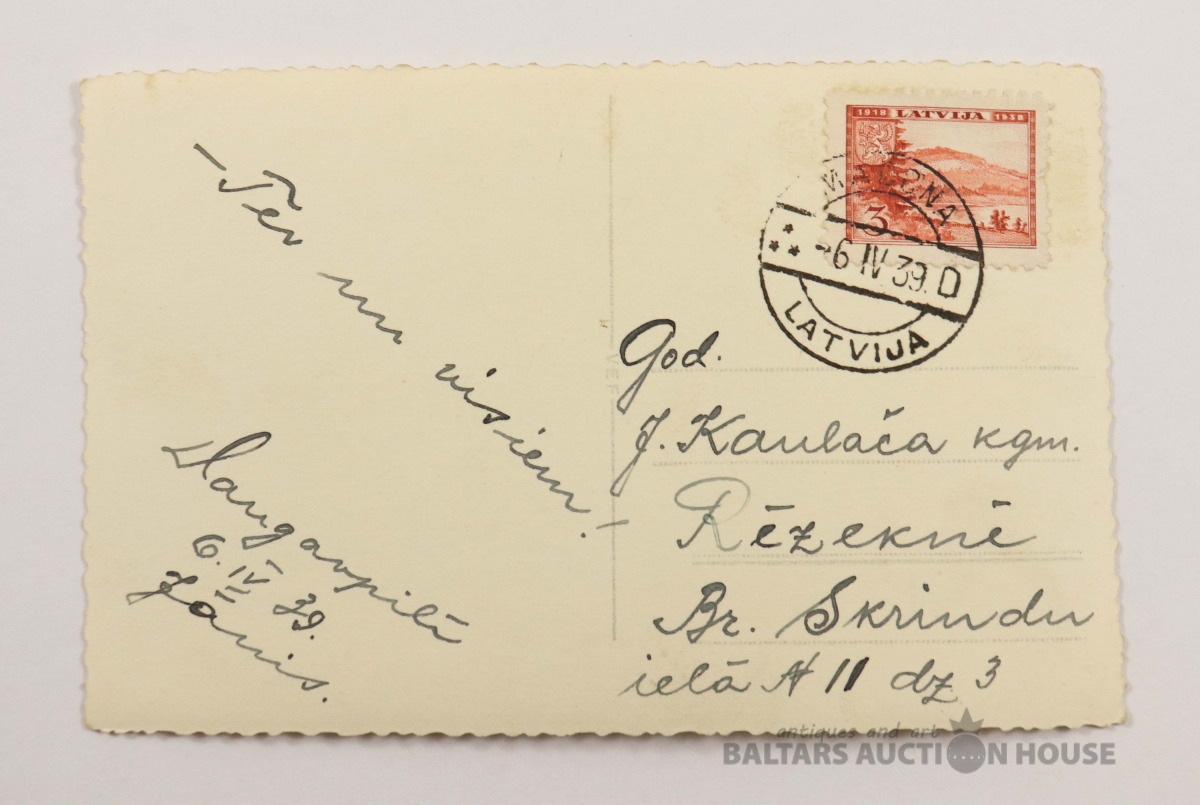 - Tev un visiem!
Daugavpilī
6. IV 39.
Jānis.
1918 LATVIJA 1938
3
-6 IV 39. D
LATVIJA
God.
J. Kaulača kgm.
Rēzeknē
Br. Skrindu
ielā N 11 dz 3
antiques and art
BALTARS AUCTION HOUSE